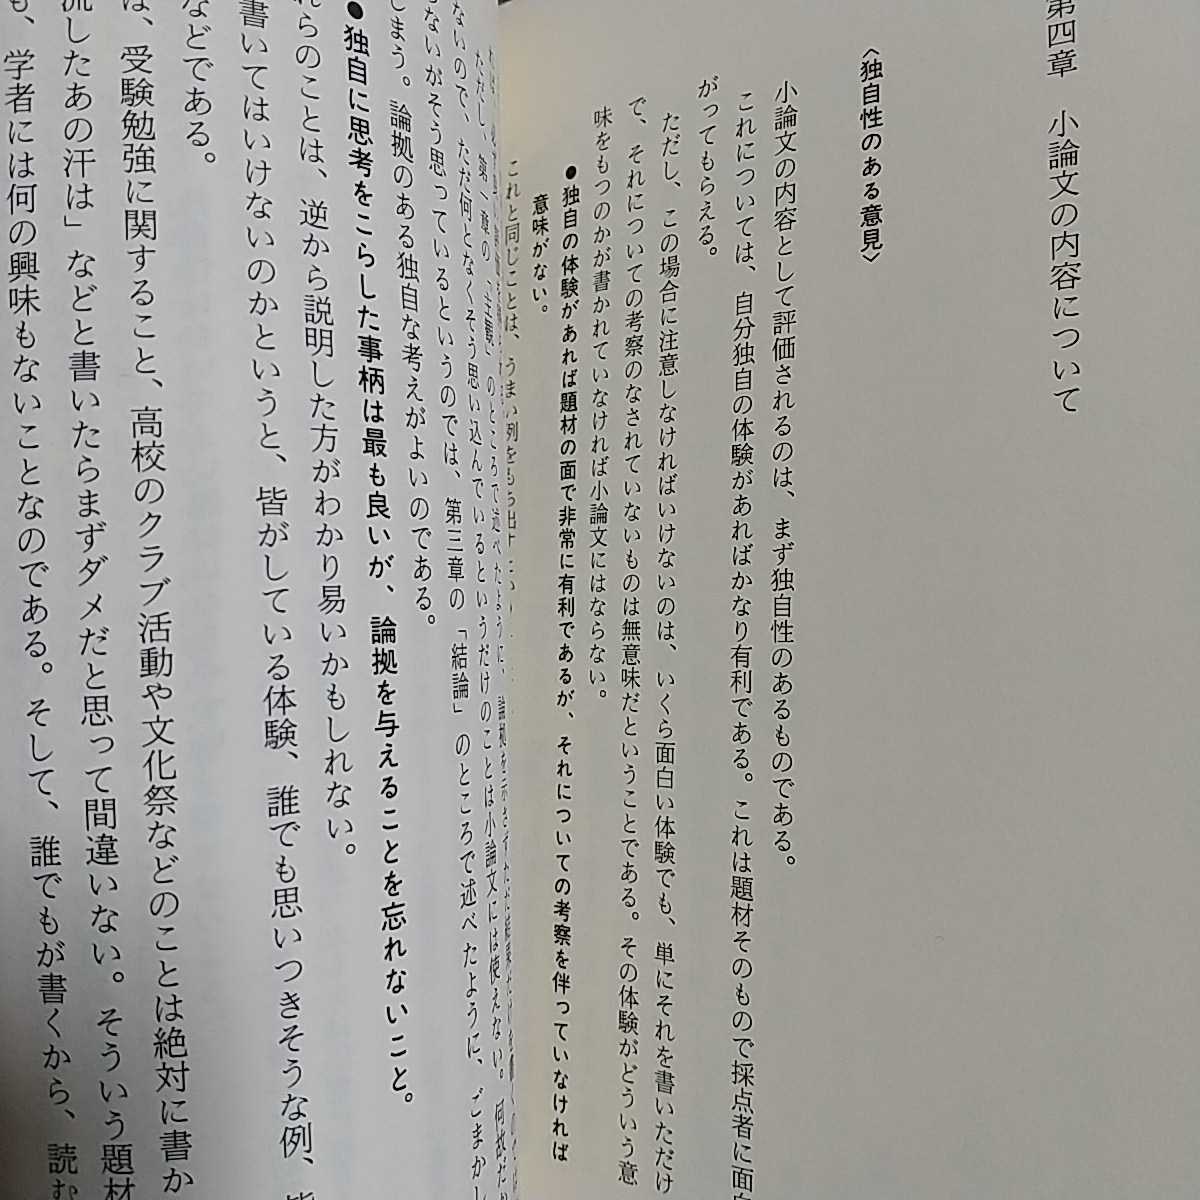 第四章　小論文の内容について
〈独自性のある意見〉
小論文の内容として評価されるのは、まず独自性のあるものである。
これについては、自分独自の体験があればかなり有利である。これは題材そのもので採点者に面白
がってもらえる。
ただし、この場合に注意しなければいけないのは、いくら面白い体験でも、単にそれを書いただけ
で、それについての考察のなされていないものは無意味だということである。その体験がどういう意
味をもつのかが書かれていなければ小論文にはならない。
●独自の体験があれば題材の面で非常に有利であるが、それについての考察を伴っていなければ
意味がない。
これと同じことは、うまい例をもち出す
ただし、第一章の「主観」のところで述べたように、論拠を示さずただ結果だけを書く
ないので、ただ何となくそう思い込んでいるというだけのことは小論文には使えない。何故だか
らないがそう思っているというのでは、第三章の「結論」のところで述べたように、ごまかし
しまう。論拠のある独自な考えがよいのである。
●独自に思考をこらした事柄は最も良いが、論拠を与えることを忘れないこと。
れらのことは、逆から説明した方がわかり易いかもしれない。
書いてはいけないのかというと、皆がしている体験、誰でも思いつきそうな例、皆
などである。
は、受験勉強に関すること、高校のクラブ活動や文化祭などのことは絶対に書か
流したあの汗は」などと書いたらまずダメだと思って間違いない。そういう題材
も、学者には何の興味もないことなのである。そして、誰でもが書くから、読む